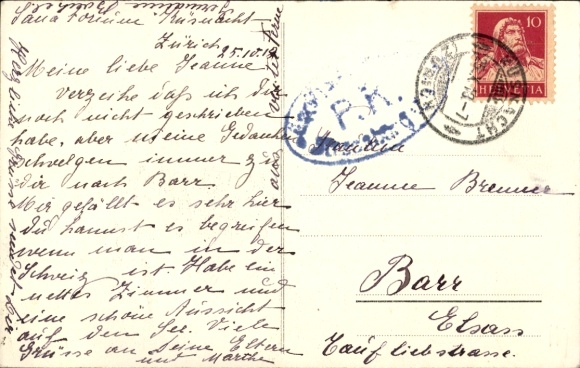 Küsnacht
Zürich 25.10.19
Meine liebe Jeanne!
Verzeihe daß ich dir
noch nicht geschrieben
habe, aber meine Gedanken
schwelgen immer zu
dir nach Barr.
Mir gefällt es sehr hier
du kannst es begreifen
wenn man in der
Schweiz ist Habe ein
nettes Zimmer und
eine schöne Aussicht
auf den See. Viele
Grüsse an Deine Eltern
und Marthe
aus der Ferne
10
HELVETIA
P.K.
Fräulein
Jeanne Brenner
Barr
Elsass